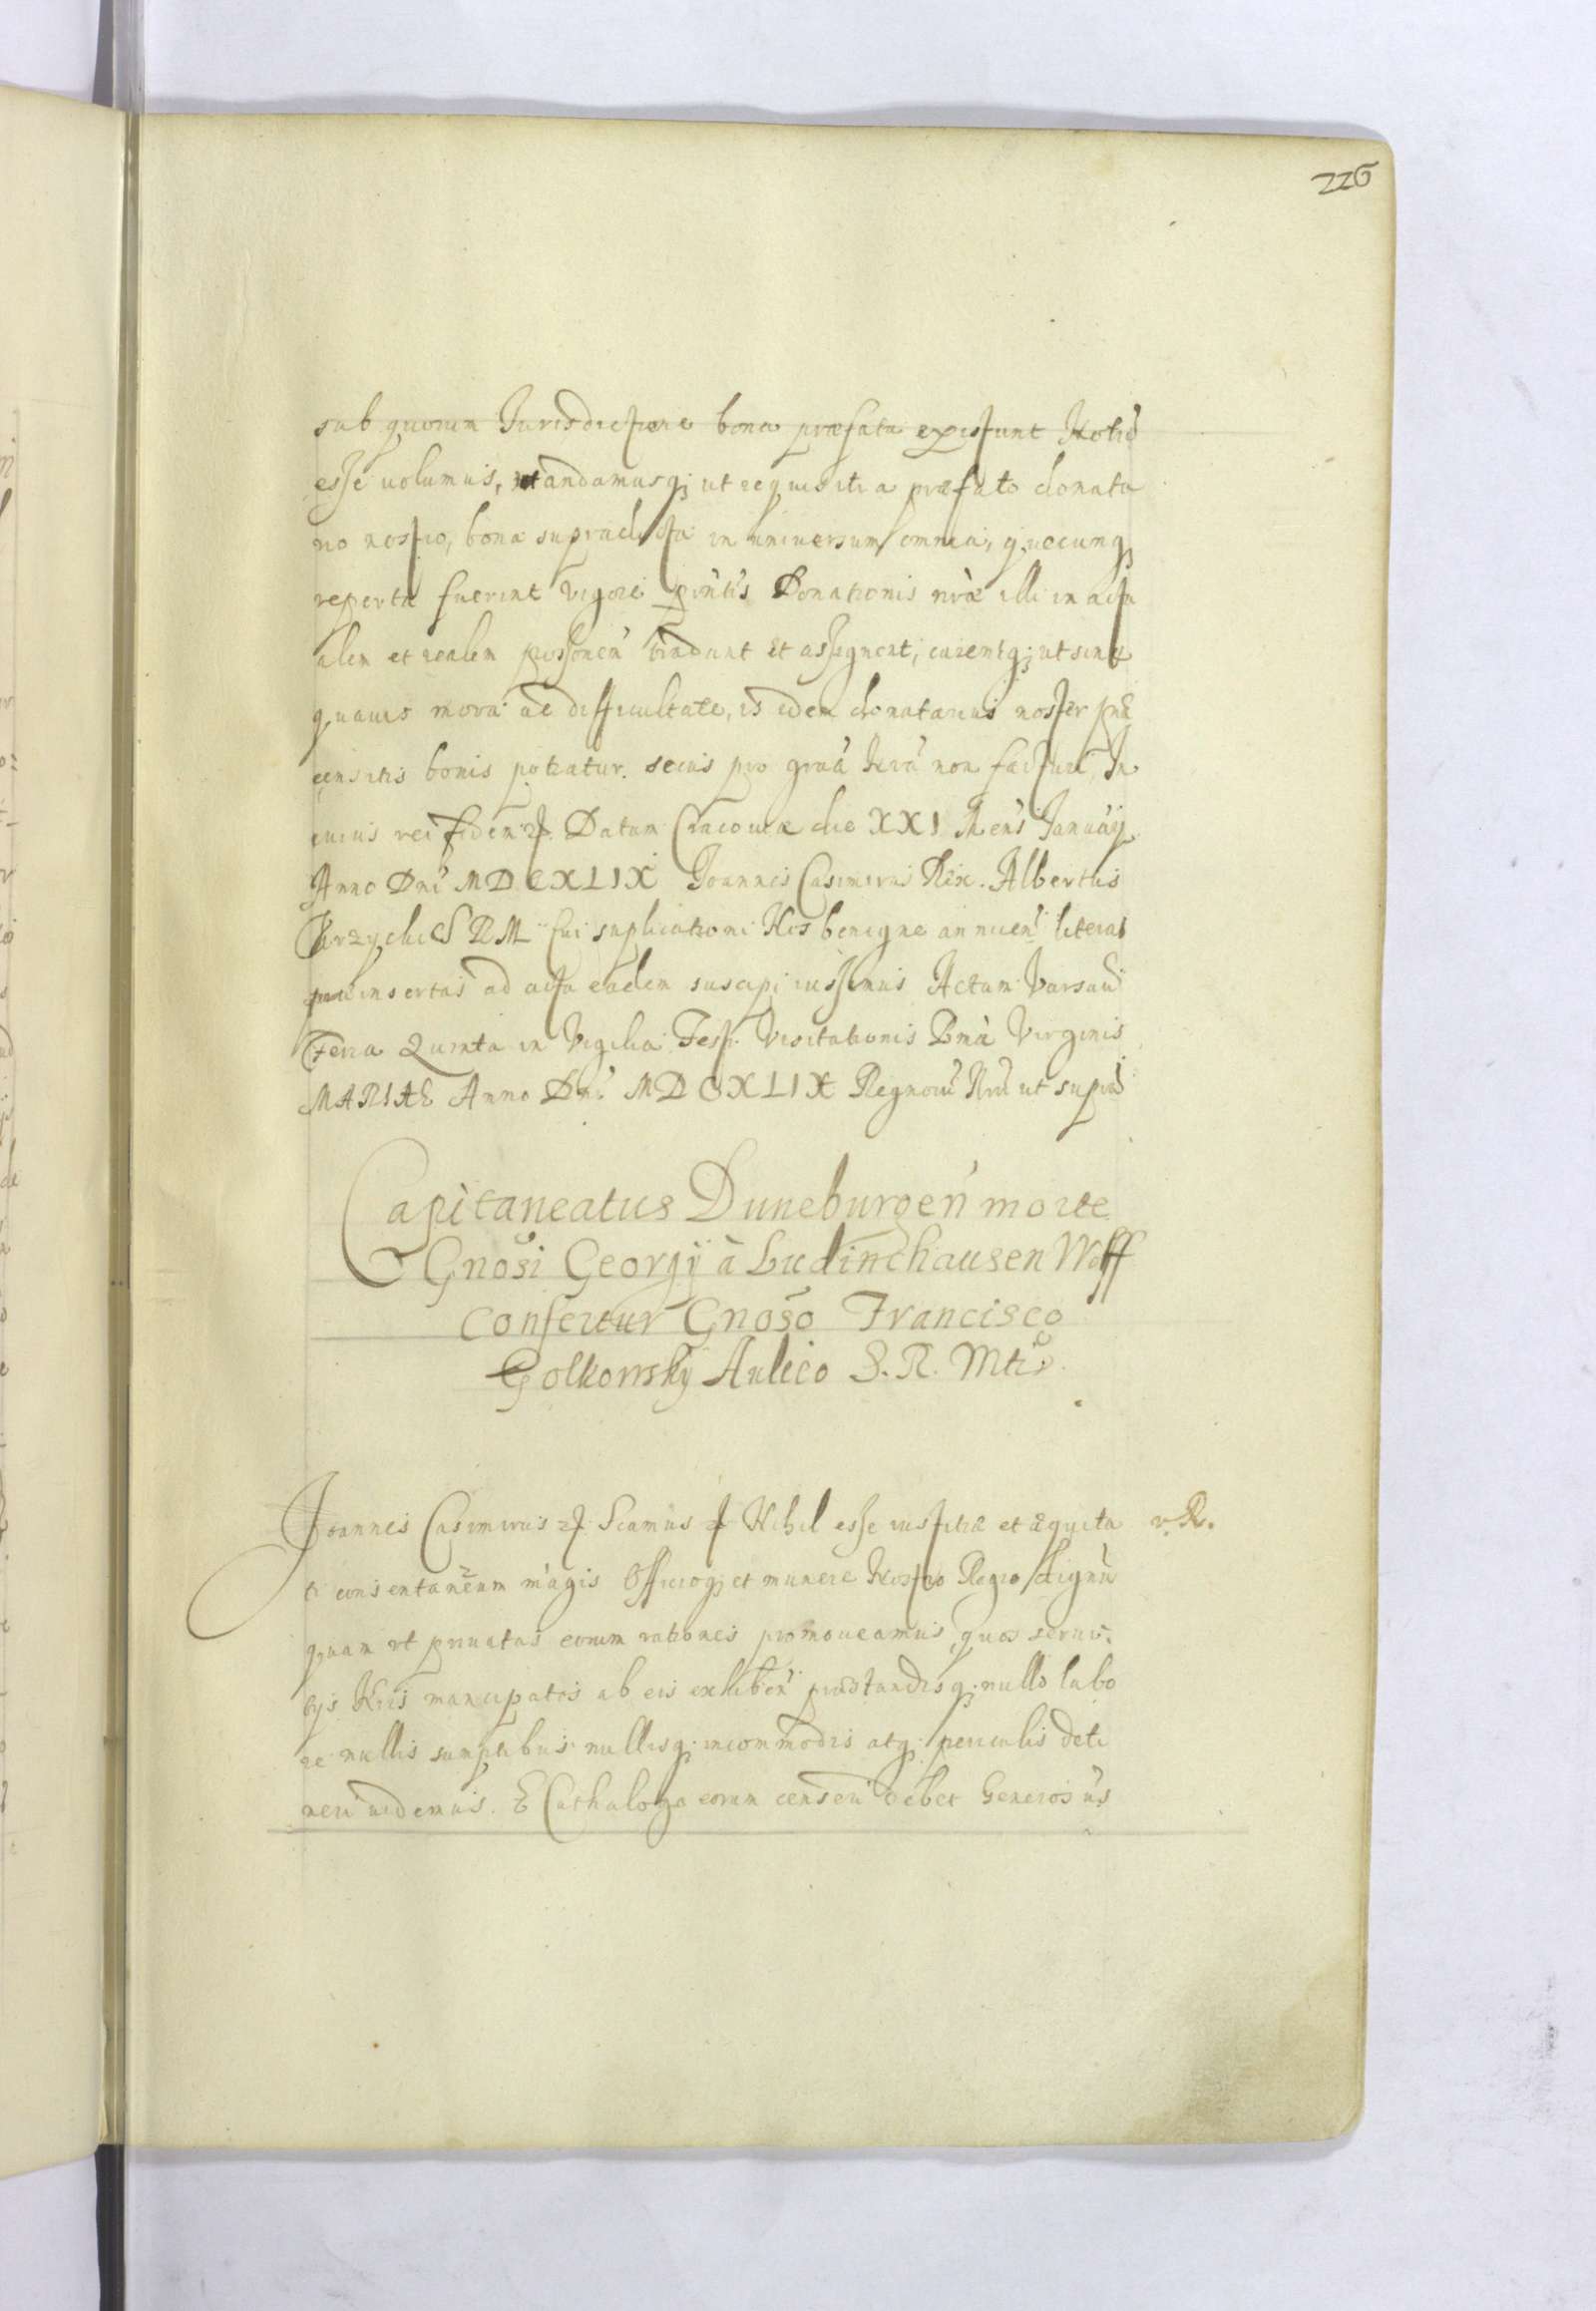 226
sub quorum Jurisdictione bona præfata existunt Notũ
esse uolumus, mandamusq; ut requisiti a præfato donata
rio nostro, bona supradicta in uniuersum omnia, quęcunq;
reperta fuerint vigore pn̄tis Donationis nr̄æ illi in actu
alem et realem possonem̃ tradant et assignent, curentq; ut sine
quauis mora ac difficultate, is idem donatarius noster præ
censitis bonis potiatur. secus pro gratiã Nrã non facturi In
cuius rei fidem etc. Datum Cracouiæ die XXI Mens̃ Januarij
Anno Dni MDCXLIX Joannes Casimirus Rex. Albertus
SRM Cui suplicationi Nos benigne annuen̄ literas
præinsertas ad acta eadem suscipi iussimus Actum Varsau
Feria Quinta in Vigilia Festi Visitationis Bmæ Virginis
MARIAE Anno Dni MDCXLIX Regnorũ Nrũ ut supra
Capitaneatus Duneburgen̄ morte
Gnosi Georgij à Ludinchausen Wolff
confertur Gnoso Francisco
Golkowsky Aulico S. R. Mtis.
Joannes Casimirus etc Seamus etc Nihil esse iustitiæ et æquita v. R.
ti consentaneum magis Officioq; et munere Nostro Regio dignũ
quam ut priuatas eorum rationes promoueamus, quos serui
tijs Nris mancipatos ab eis exhiben̄ præstandisq; nullo labo
re nullis sumptibus nullisq; incommodis atq; periculis deti
neri uidemus. E Cathalogo eorum censeri debet Generosus